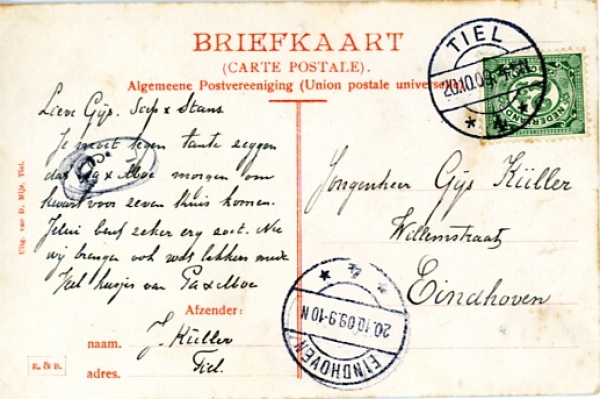 BRIEFKAART
(CARTE POSTALE).
Algemeene Postvereeniging (Union postale universelle)
TIEL
20.10.09
4
NEDERLAND
Lieve Gijs. Siep x Stans.
Je moet tegen tante zeggen
dat Pa x Moe morgen om
kwart voor zeven thuis komen.
zeker erg zoet. Nu
wij brengen ook wat lekkers mede
Veel kusjes van Pa x Moe
Jongenheer Gijs Küller
Willemstraat
Eindhoven
Afzender:
naam. J. Küller
adres. Tiel.
EINDHOVEN
20.10.09.9-10N
4
Uitg. van D. Mijs, Tiel.
E. & B.